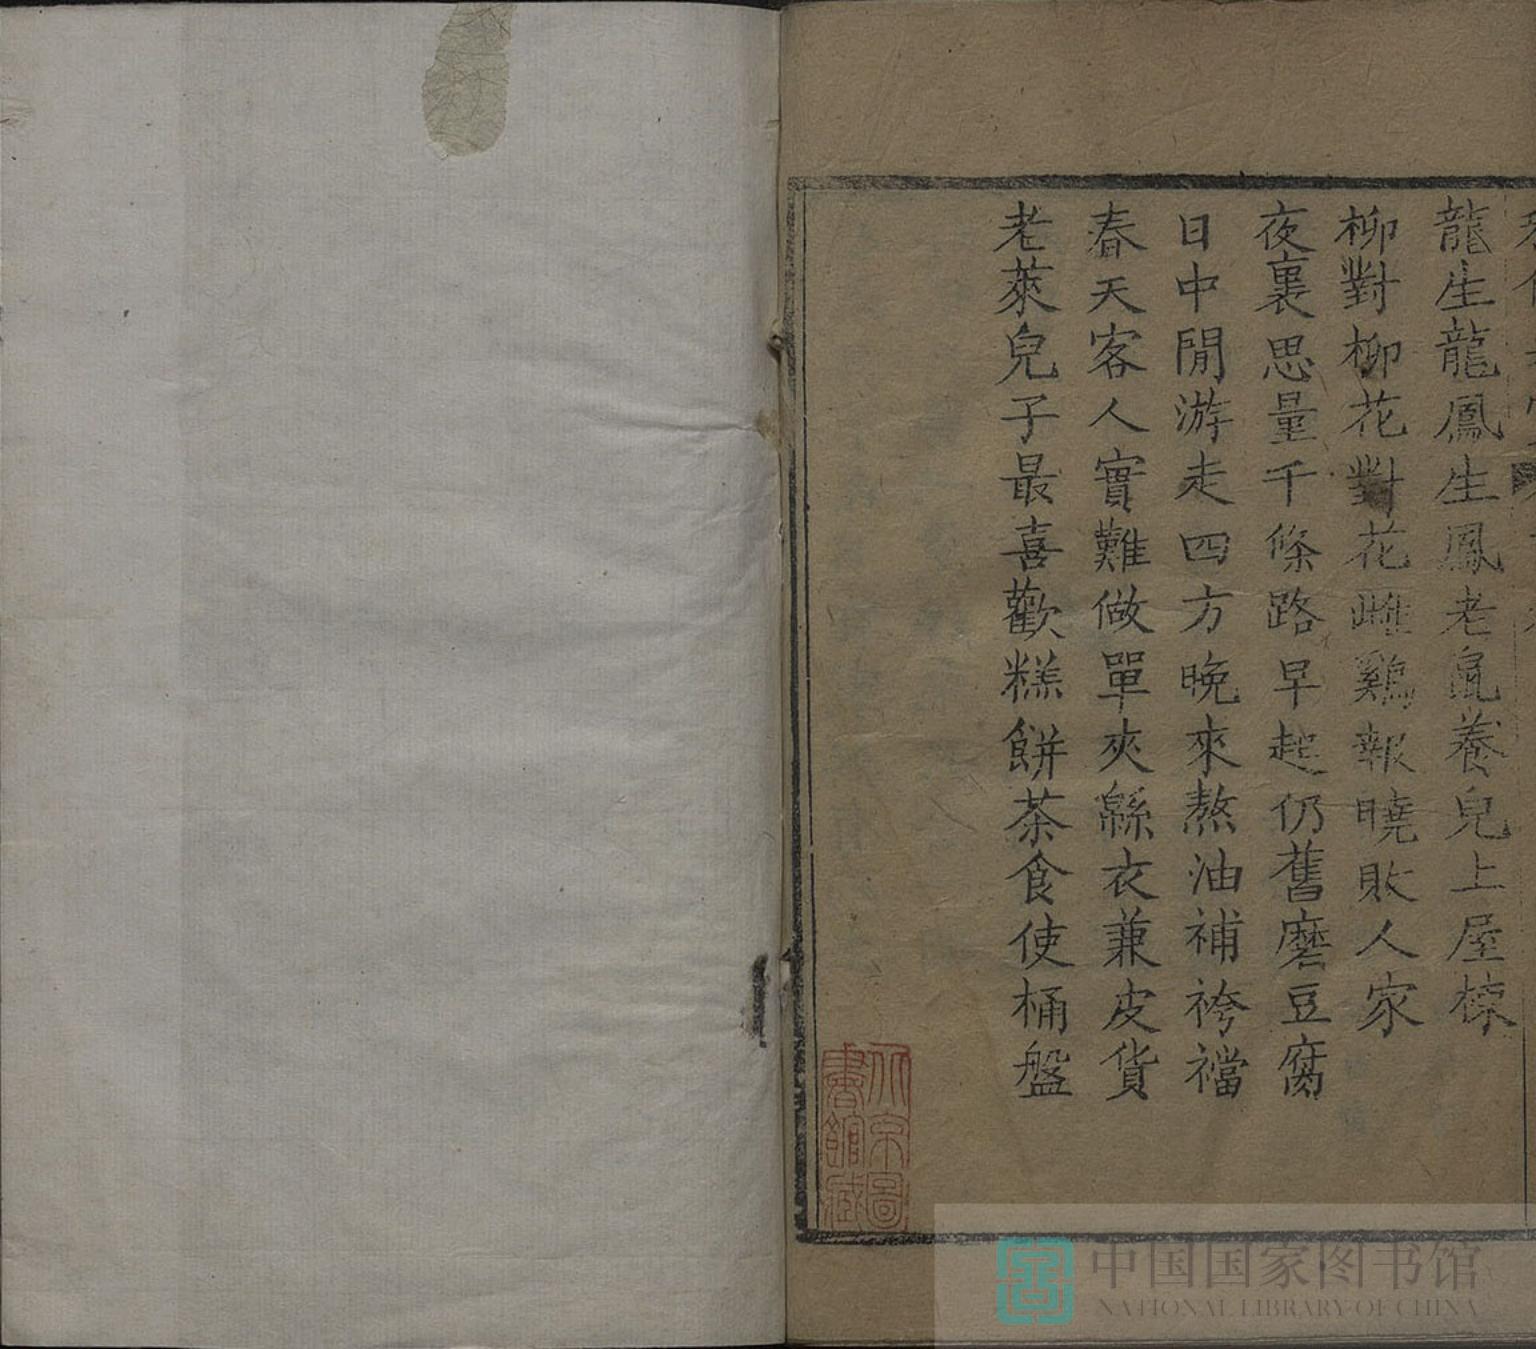 龍生龍鳳生鳳老鼠養兒上屋樑
柳對柳花對花雌鷄報曉敗人家
夜裏思量千條路早起仍舊磨豆腐
日中閒游走四方晚來熬油補袴襠
春天客人實難做單夾緜衣兼皮貨
老萊兒子最喜歡糕餅茶食使桶盤
北京圖
書館藏
中国国家图书馆
NATIONAL LIBRARY OF CHINA